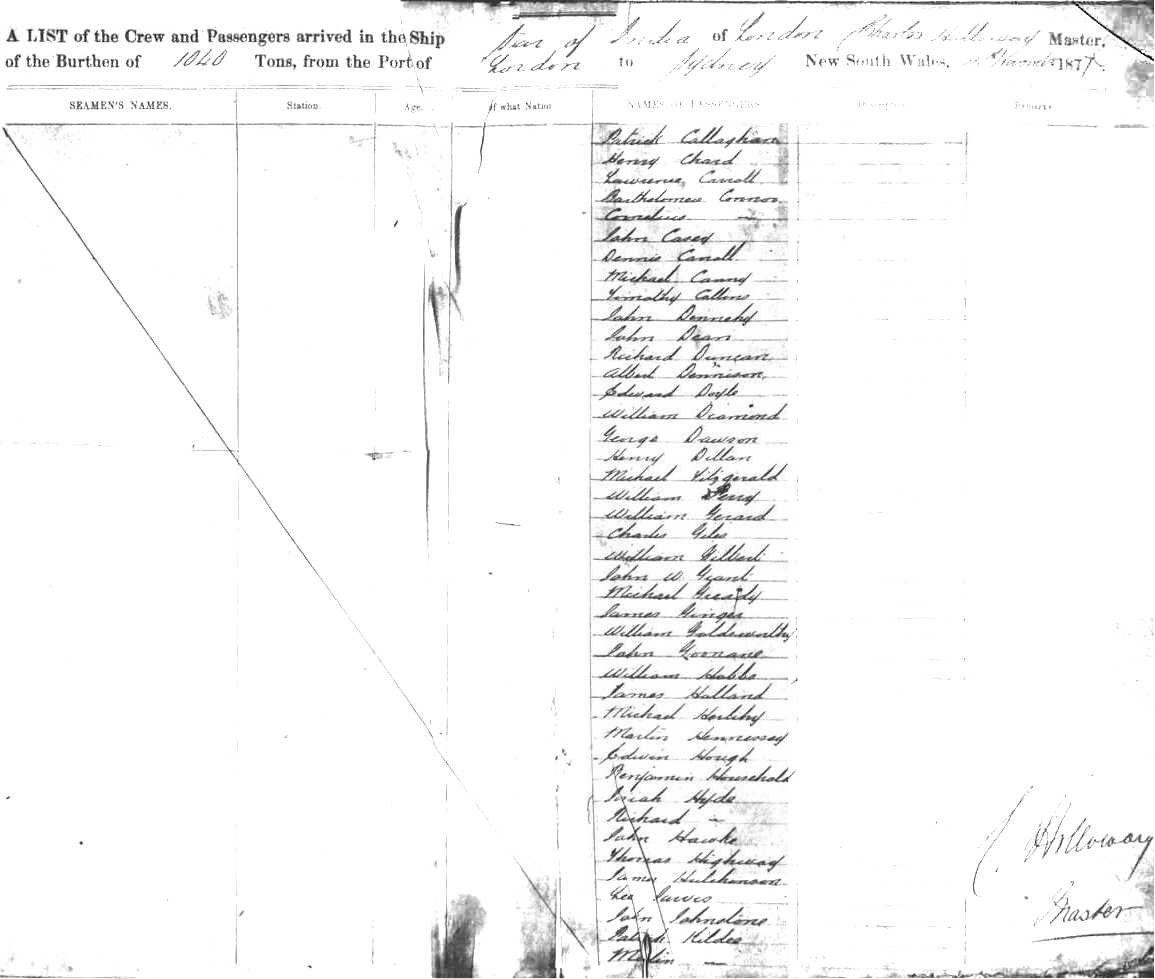 A LIST of the Crew and Passengers arrived in the Ship Star of India of London Charles Holloway Master,
of the Burthen of 1040 Tons, from the Port of London to Sydney New South Wales, 1877.
SEAMEN'S NAMES. Station. Age. Of what Nation NAMES OF PASSENGERS Remarks
Patrick Callaghan
Henry Chard
Lawrence Carroll
Bartholomew Connor
Cornelius —
John Casey
Dennis Carroll
Michael Canny
Timothy Collins
John Dennehy
John Dean
Richard Duncan
Albert Dennison
Edward Doyle
William Diamond
George Dawson
Henry Dillan
Michael Fitzgerald
William
William Gerard
Charles Giles
William Gilbert
John W Grant
Michael Gready
James Ginger
William Goldsworthy
John Goonane
William Hobbs
James Holland
Michael Herlihy
Martin Hennessey
Edwin Hough
Benjamin Household
Josiah Hyde
Richard —
John Hawke
Thomas Highway
James Hutchinson
Geo Jarvis
John Johnstone
Patrick Kildea
Martin —
C Holloway
Master